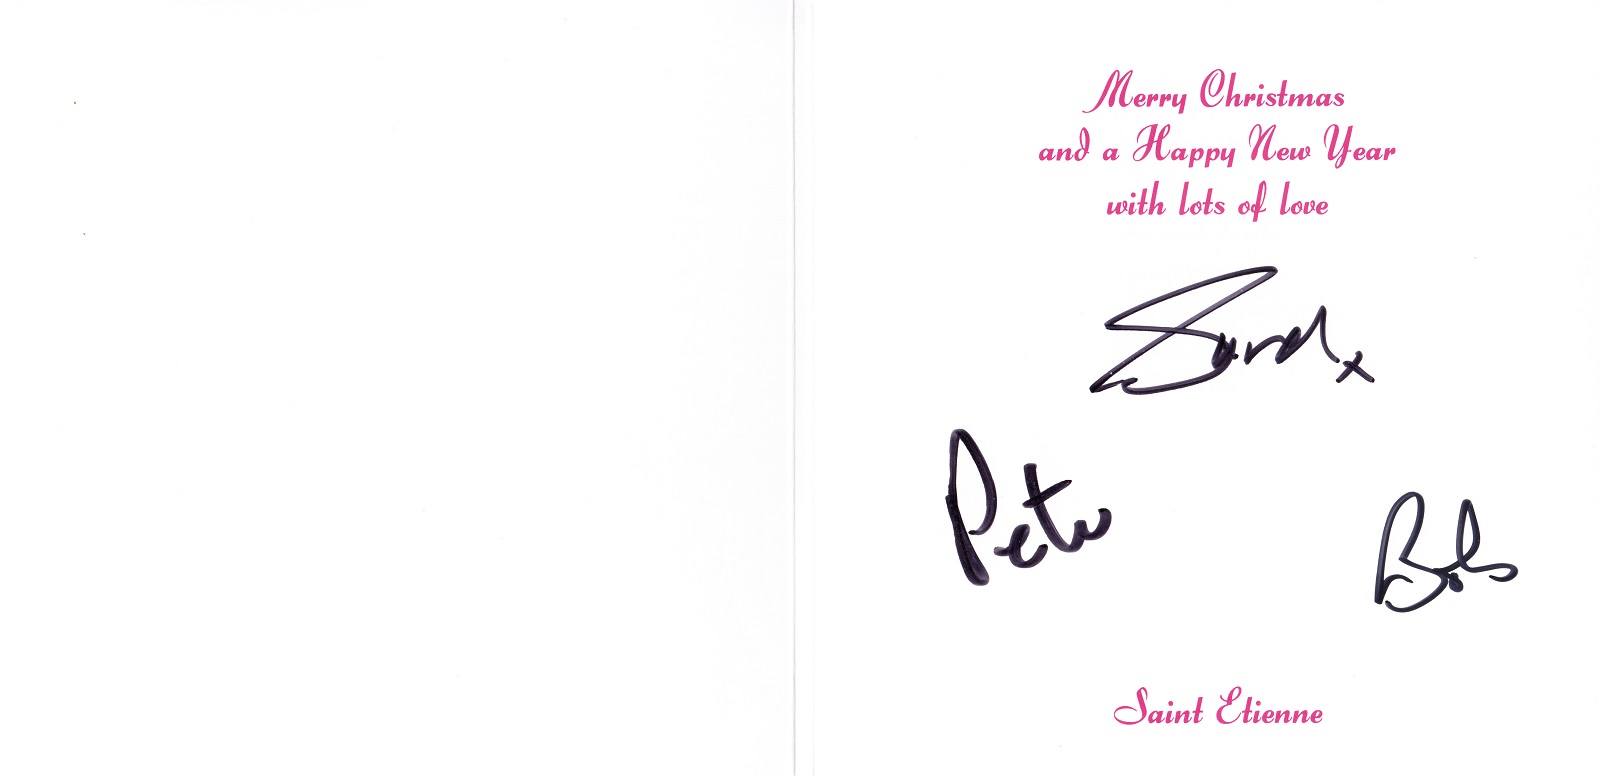 Merry Christmas
and a Happy New Year
with lots of love
Sarah x
Pete
Bob
Saint Etienne